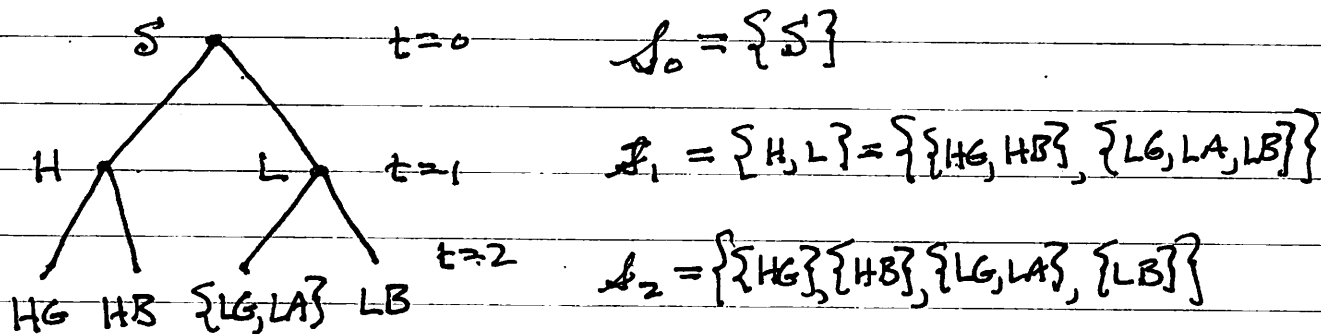 S t=0 𝒮₀ = {S}
H L t=1 𝒮₁ = {H, L} = {{HG, HB}, {LG, LA, LB}}
t=2 𝒮₂ = {{HG}, {HB}, {LG, LA}, {LB}}
HG HB {LG, LA} LB